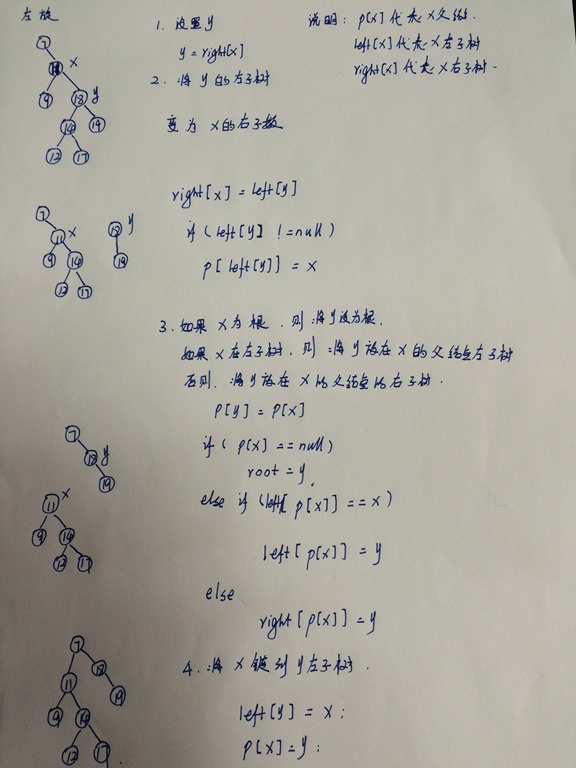 左旋
1. 设置y
y = right[x]
说明: p[x] 代表 x父结.
left[x] 代表 x左子树
right[x] 代表 x右子树.
2. 将 y 的左子树
变为 x的右子数
7
11 x
9 18 y
14 19
12 17
right[x] = left[y]
if (left[y] != null)
p[left[y]] = x
7
11 x 18 y
9 14 19
12 17
3. 如果 x 为根, 则将y设为根.
如果 x 在左子树, 则将 y 放在 x 的父结点左子树
否则, 将y 放在 x 的父结点的右子树.
p[y] = p[x]
if( p[x] == null)
root = y.
else if (left[ p[x]] == x)
left[ p[x]] = y
else
right[ p[x]] = y
7
18 y
19
11 x
9 14
12 17
4. 将 x 链到 y左子树.
left[y] = x;
p[x] = y;
7
11 18
9 14 19
12 17